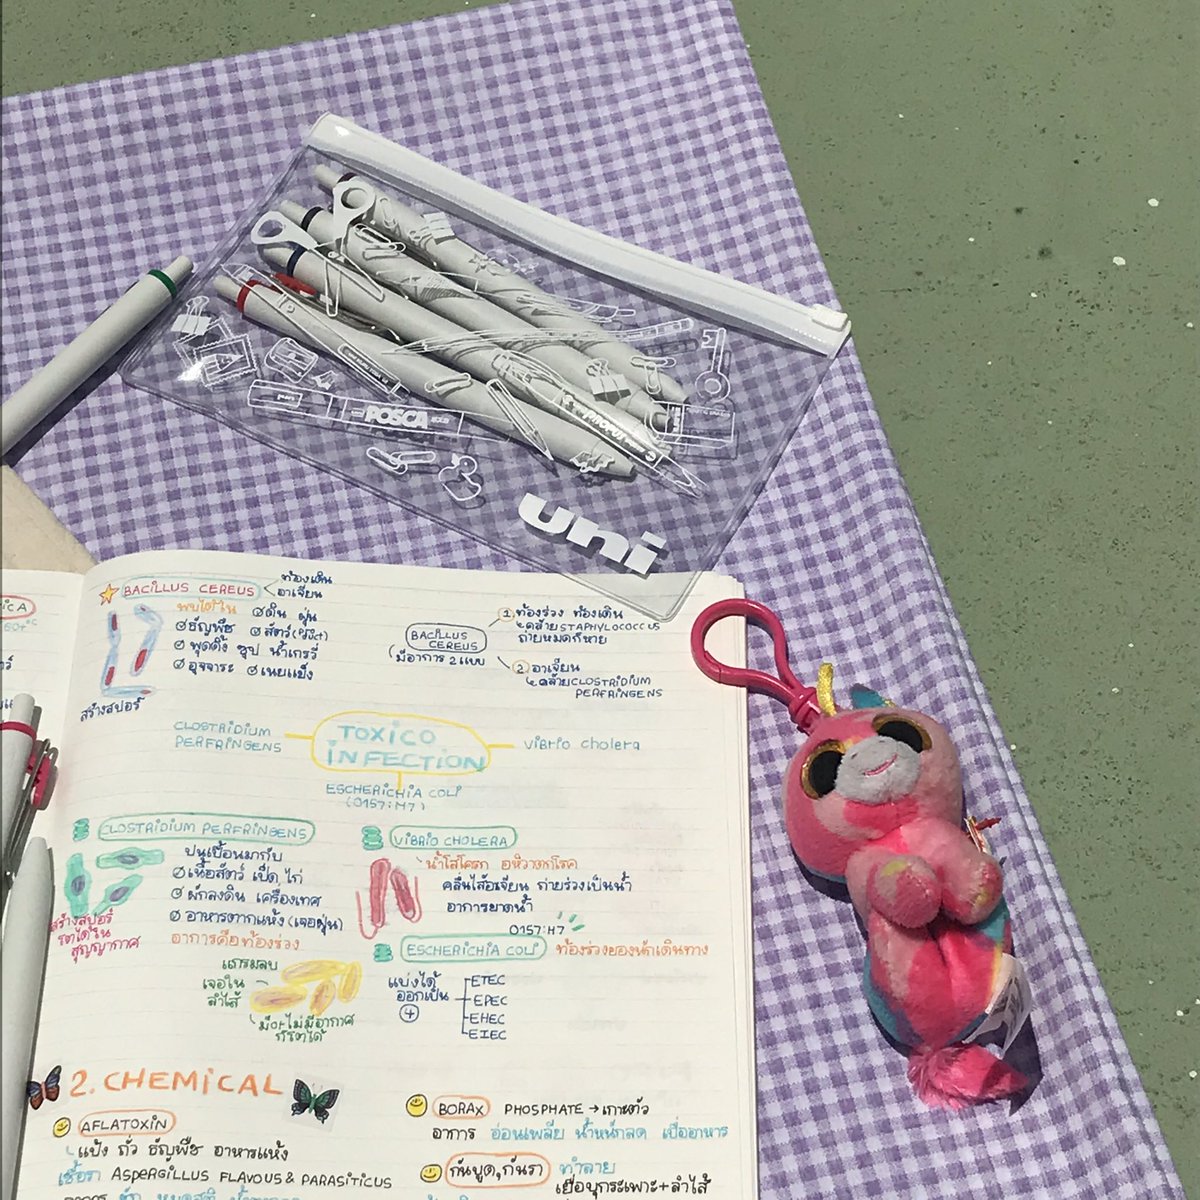 POSCA
uni
BACILLUS CEREUS
ท้องเดิน
อาเจียน
พบได้ใน
ดิน ฝุ่น
ธัญพืช
พุดดิ้ง ซุป น้ำเกรวี่
อุจจาระ
เนยแข็ง
สร้างสปอร์
BACILLUS
CEREUS
มีอาการ 2 แบบ
1 ท้องร่วง ท้องเดิน
คล้าย STAPHYLOCOCCUS
ถ่ายหมดก็หาย
2 อาเจียน
คล้าย CLOSTRIDIUM
PERFRINGENS
CLOSTRIDIUM
PERFRINGENS
TOXICO
INFECTION
VIBRIO CHOLERA
ESCHERICHIA COLI
(O157:H7)
CLOSTRIDIUM PERFRINGENS
ปนเปื้อนมากับ
เนื้อสัตว์ เป็ด ไก่
ผักลงดิน เครื่องเทศ
อาหารตากแห้ง (เจอฝุ่น)
อาการคือท้องร่วง
สร้างสปอร์
โตได้ใน
สุญญากาศ
VIBRIO CHOLERA
น้ำโสโครก อหิวาตกโรค
คลื่นไส้อาเจียน ถ่ายร่วงเป็นน้ำ
อาการขาดน้ำ
O157:H7
ESCHERICHIA COLI ท้องร่วงของนักเดินทาง
แกรมลบ
เจอใน
ลำไส้
มี or ไม่มีอากาศ
ก็โตได้
แบ่งได้
ออกเป็น
4
ETEC
EPEC
EHEC
EIEC
2. CHEMICAL
AFLATOXIN
แป้ง ถั่ว ธัญพืช อาหารแห้ง
เชื้อรา ASPERGILLUS FLAVOUS & PARASITICUS
BORAX PHOSPHATE → เกาะตัว
อาการ อ่อนเพลีย น้ำหนักลด เบื่ออาหาร
กันบูด, กันรา ทำลาย
เยื่อบุกระเพาะ + ลำไส้